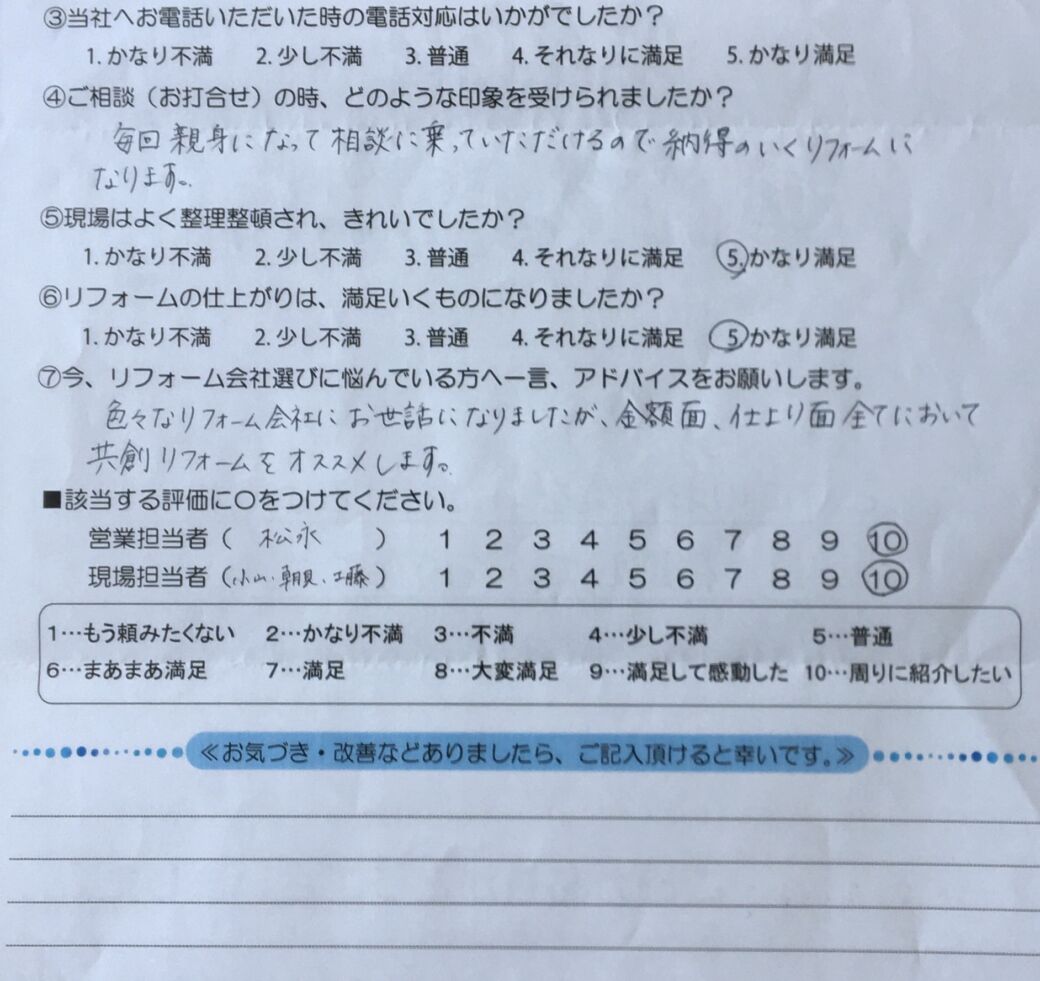 ③当社へお電話いただいた時の電話対応はいかがでしたか？
1. かなり不満 2. 少し不満 3. 普通 4. それなりに満足 5. かなり満足
④ご相談（お打合せ）の時、どのような印象を受けられましたか？
毎回親身になって相談に乗っていただけるので納得のいくリフォームに
なります。
⑤現場はよく整理整頓され、きれいでしたか？
1. かなり不満 2. 少し不満 3. 普通 4. それなりに満足 5. かなり満足
⑥リフォームの仕上がりは、満足いくものになりましたか？
1. かなり不満 2. 少し不満 3. 普通 4. それなりに満足 5 かなり満足
⑦今、リフォーム会社選びに悩んでいる方へ一言、アドバイスをお願いします。
色々なリフォーム会社にお世話になりましたが、金額面、仕上り面全てにおいて
共創リフォームをオススメします。
■該当する評価に〇をつけてください。
営業担当者（ 松永 ） 1 2 3 4 5 6 7 8 9 10
現場担当者（小山・朝見・工藤） 1 2 3 4 5 6 7 8 9 10
1…もう頼みたくない 2…かなり不満 3…不満 4…少し不満 5…普通
6…まあまあ満足 7…満足 8…大変満足 9…満足して感動した 10…周りに紹介したい
≪お気づき・改善などありましたら、ご記入頂けると幸いです。≫